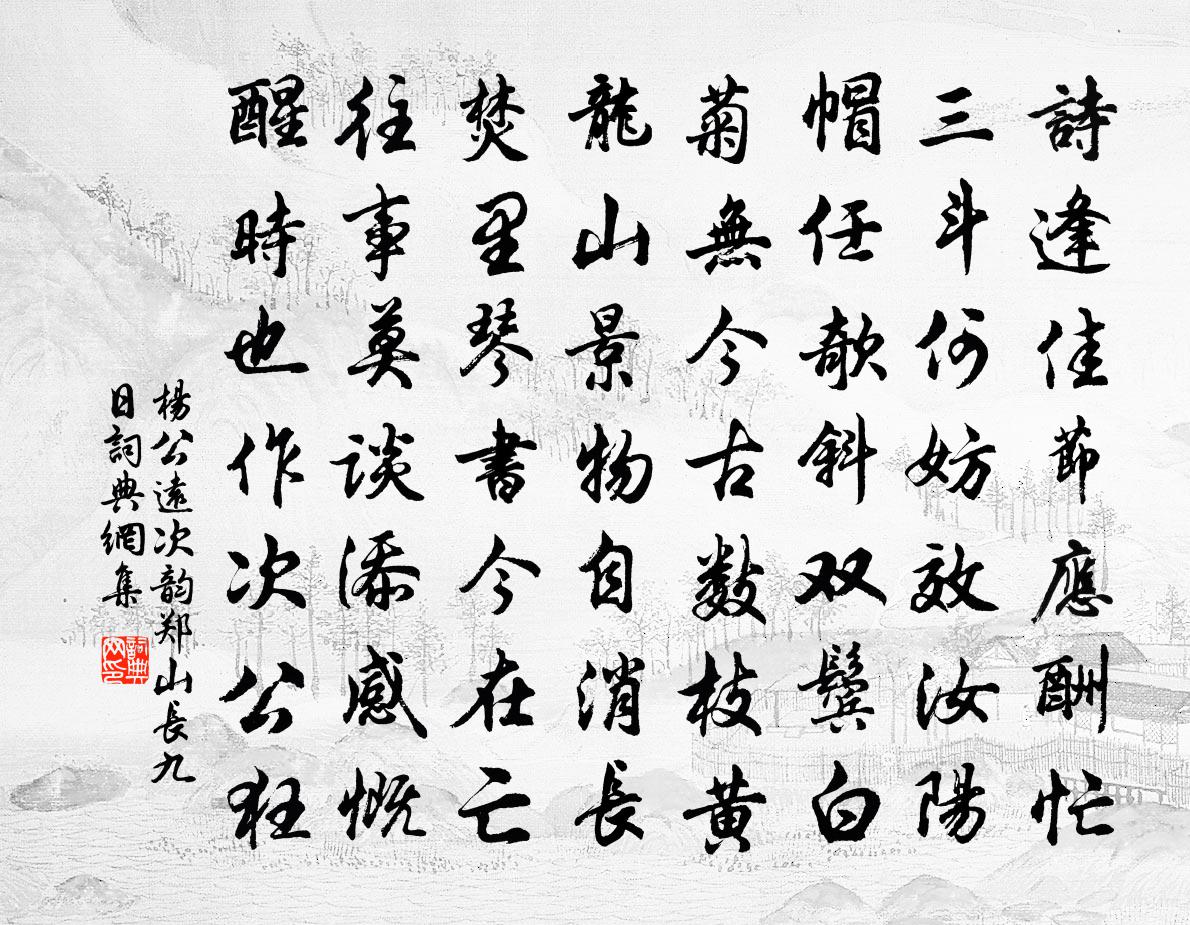 詩逢佳節應酬忙
三斗何妨效汝陽
帽任欹斜双鬓白
菊無今古数枝黄
龍山景物自消長
焚里琴書今在亡
往事莫谈添感慨
醒時也作次公狂
楊公遠次韵郑山長九
日詞典網集
詞典
网印